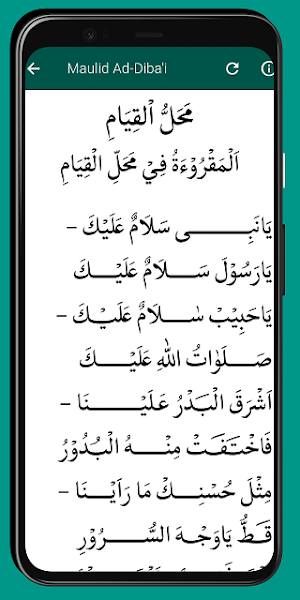 Maulid Ad-Diba'i
مَحَلُّ اْلقِيَامِ
اَلْمَقْرُوْءَةُ فِيْ مَحَلِّ الْقِيَامِ
يَانَبِــــــى سَلَامٌ عَلَيْكَ –
يَارَسُوْلَ سَـــلَامٌ عَلَيْـــكَ
يَاحَبِيْبْ سَـلَامٌ عَلَيْـــكَ –
صَـــلَوَاتُ اللهِ عَلَيْـــــكَ
اَشْرَقَ الْبَـــدْرُ عَلَيْـــنَا –
فَاخْتَفَـتْ مِنْـــهُ الْبُـدُوْرُ
مِثْلَ حُسْنِــكْ مَا رَاَيْــنَا –
قَـــطُّ يَاوَجْـهَ السُّـــرُوْرِ